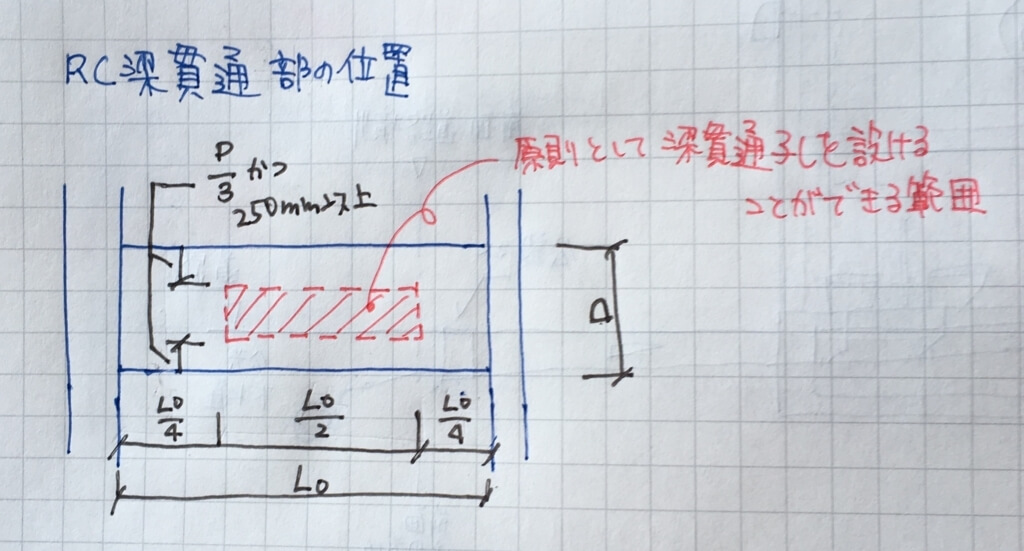 RC梁貫通部の位置
原則として梁貫通孔を設ける
ことができる範囲
D/3 かつ
250mm以上
D
L0/4
L0/2
L0/4
L0